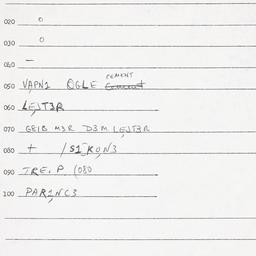 020 0
030 0
040 —
050 VAPN1 OGLE CEMENT
060 LEJT3R
070 GEIB M3R D3M LEJT3R
080 + / S1
090 TRE. P. (080
100 PAR1NC3